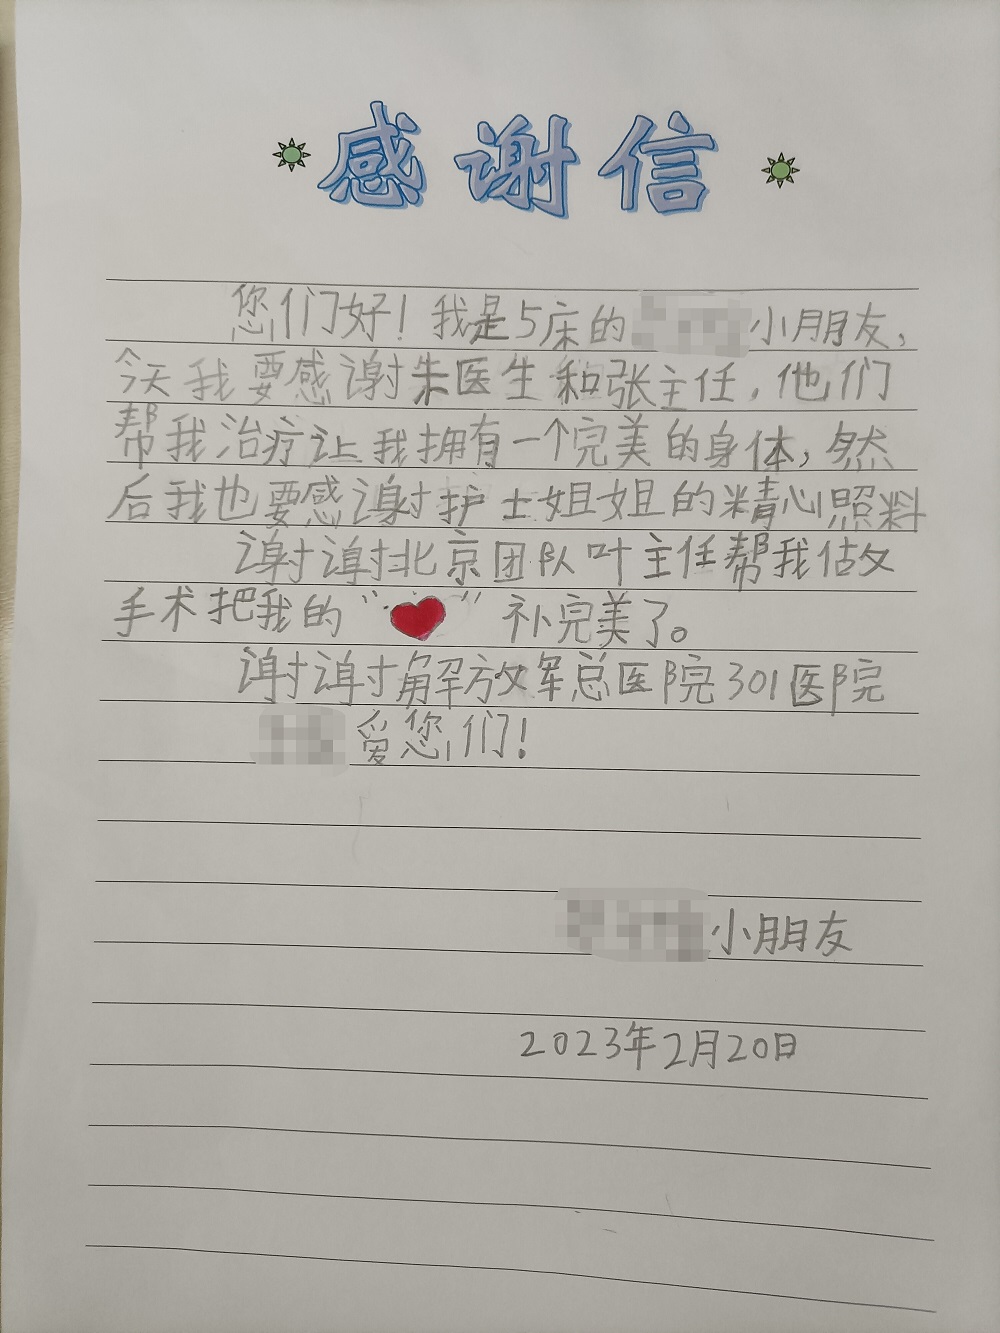 感谢信
您们好！我是5床的小朋友，
今天我要感谢朱医生和张主任，他们
帮我治疗让我拥有一个完美的身体，然
后我也要感谢护士姐姐的精心照料
谢谢北京团队叶主任帮我做
手术把我的“❤”补完美了。
谢谢解放军总医院301医院
爱您们！
小朋友
2023年2月20日